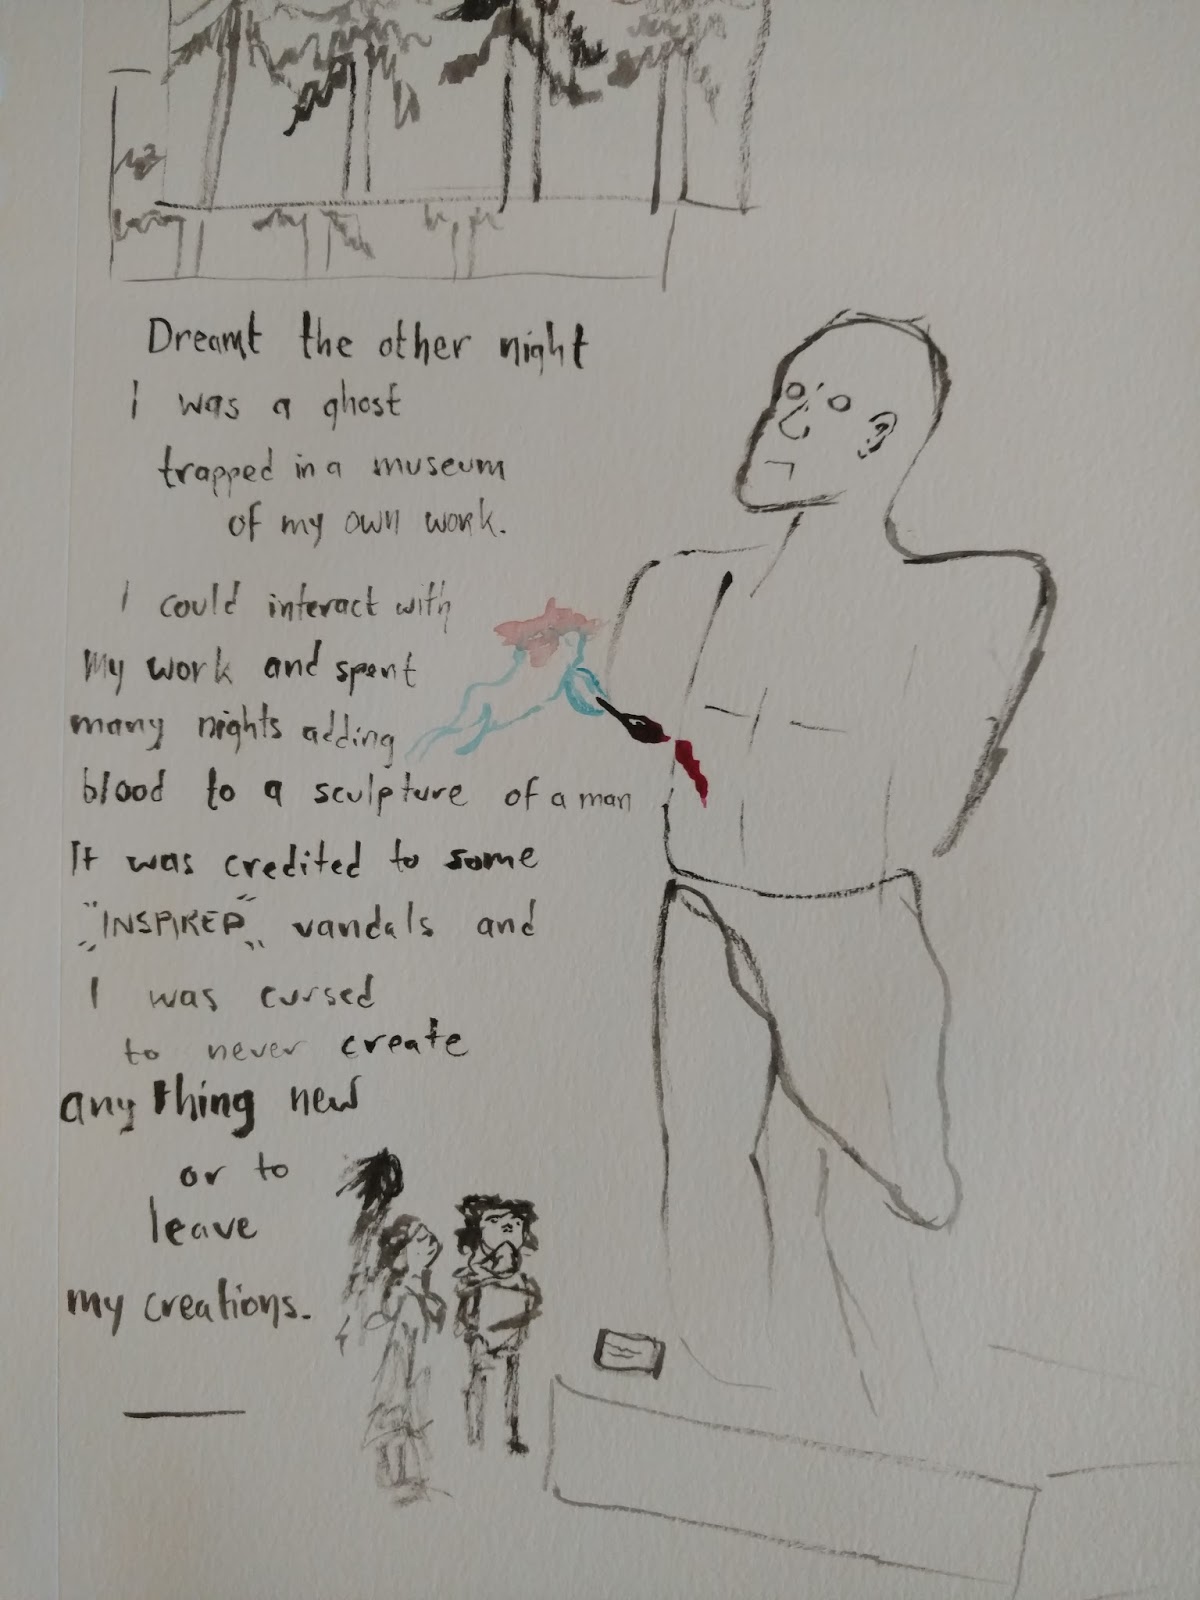 Dreamt the other night
I was a ghost
trapped in a museum
of my own work.
I could interact with
My work and spent
many nights adding
blood to a sculpture of a man
It was credited to some
"INSPIRED" vandals and
I was cursed
to never create
anything new
or to
leave
my creations.